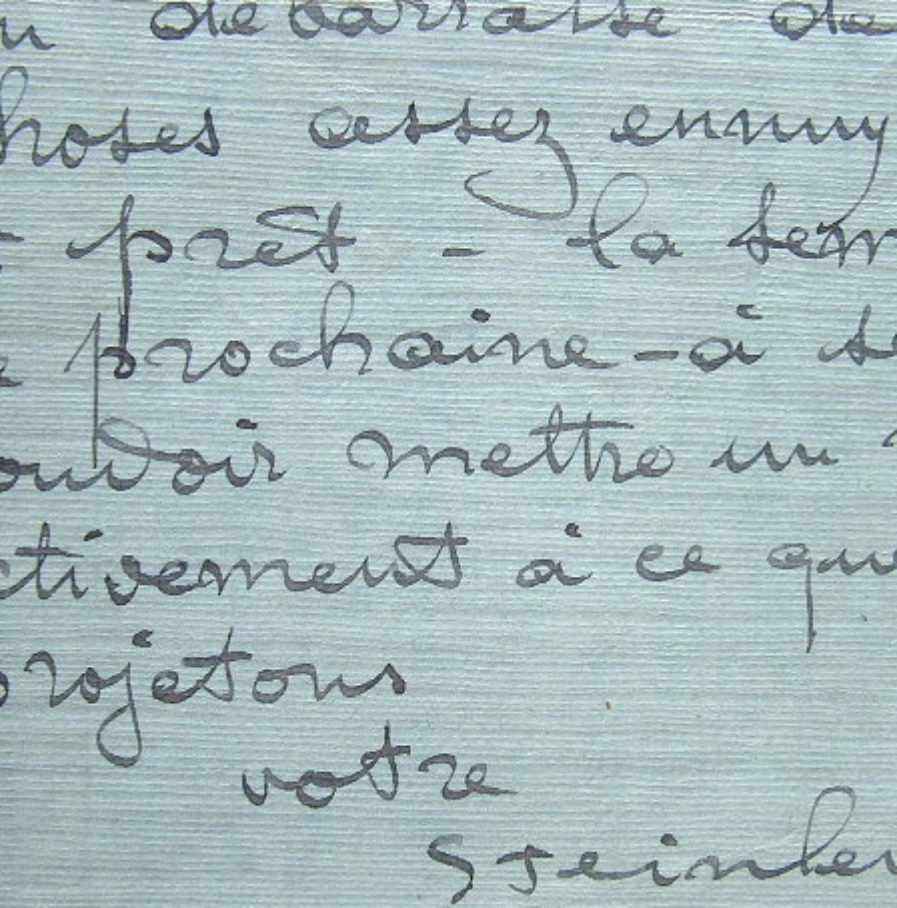 débarrassé de
hoses assez ennuy
prêt - la sem
prochaine - à se
ouvoir mettre un
ctivement à ce que
projetons
votre
Steinlen